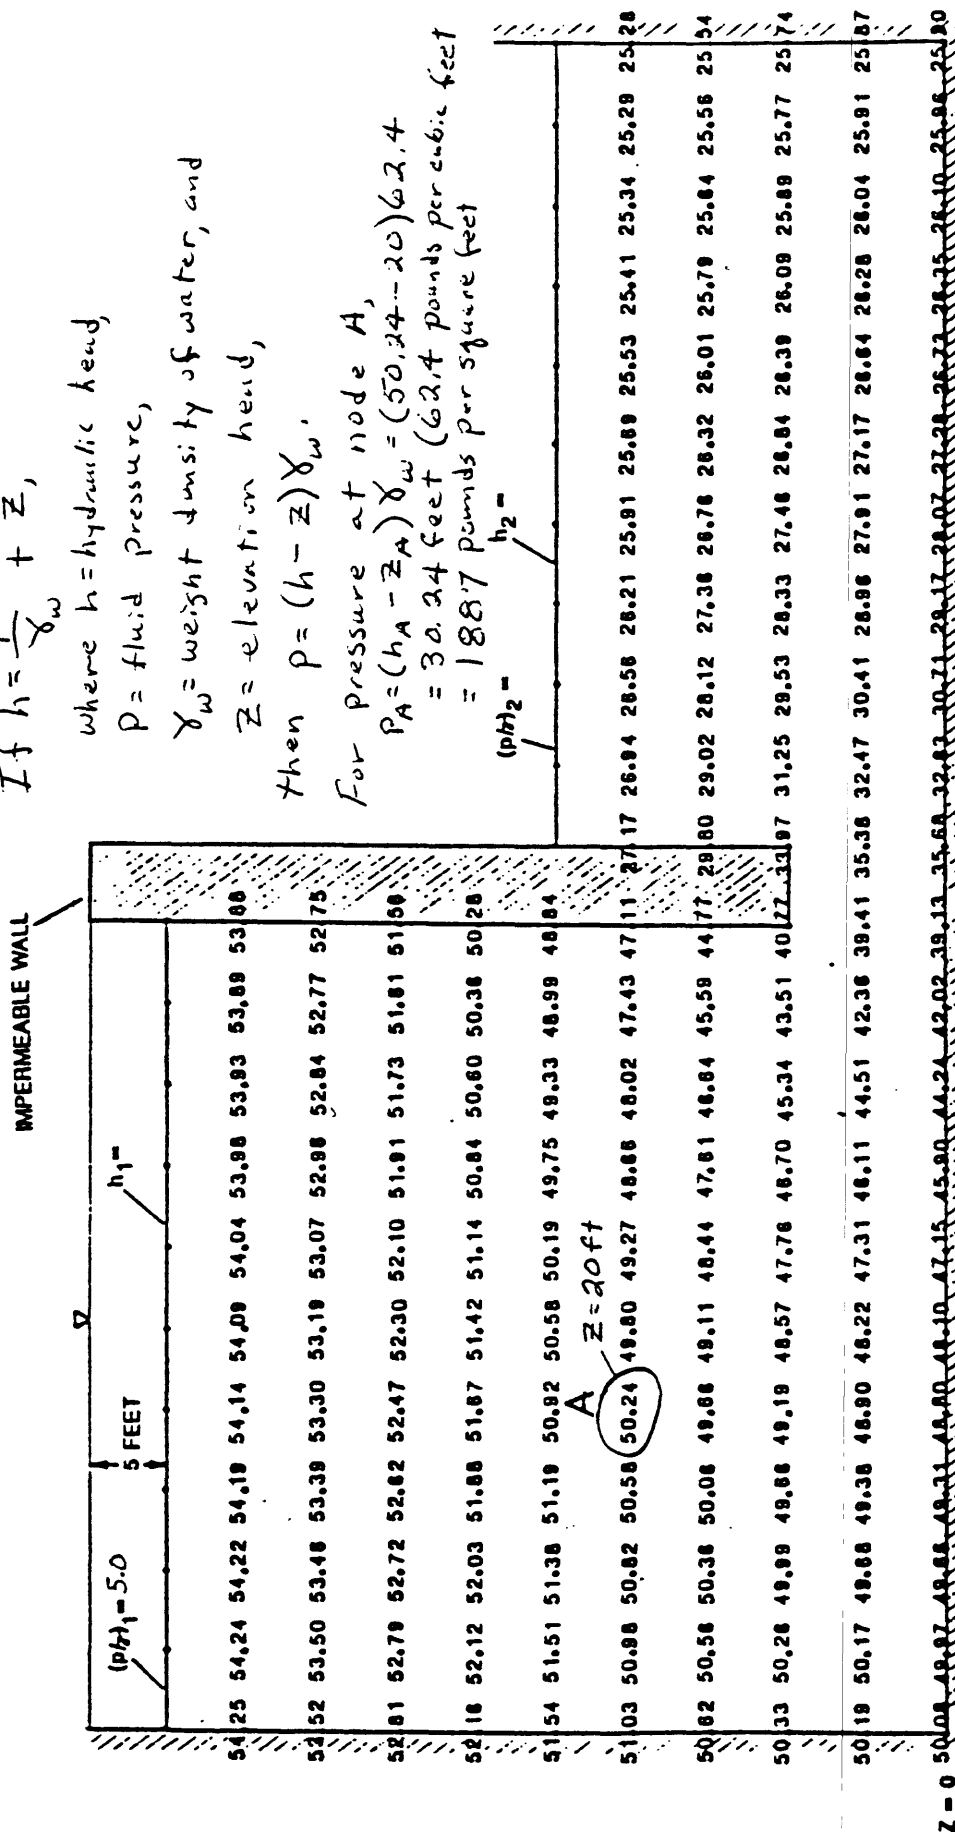 If h = p/γw + Z,
where h = hydraulic head,
P = fluid pressure,
γw = weight density of water, and
Z = elevation head,
then P = (h - Z)γw.
For pressure at node A,
PA = (hA - ZA)γw = (50.24 - 20)62.4
= 30.24 feet (62.4 pounds per cubic feet
= 1887 pounds per square feet
IMPERMEABLE WALL
5 FEET
(p/γ)1= 5.0
h1=
(p/γ)2=
h2=
54.25 54.24 54.22 54.19 54.14 54.09 54.04 53.98 53.93 53.89 53.88
53.50 53.48 53.39 53.30 53.19 53.07 52.98 52.84 52.77 52.75
52.81 52.79 52.72 52.62 52.47 52.30 52.10 51.91 51.73 51.61 51.56
52.16 52.12 52.03 51.88 51.67 51.42 51.14 50.84 50.60 50.36 50.28
51.54 51.51 51.38 51.19 50.92 50.58 50.19 49.75 49.33 48.99 48.84
A Z=20ft
51.03 50.98 50.82 50.58 50.24 49.80 49.27 48.66 48.02 47.43 47.11 27.17 26.94 26.56 26.21 25.91 25.69 25.53 25.41 25.34 25.29 25.28
50.62 50.56 50.36 50.06 49.66 49.11 48.44 47.61 46.64 45.59 44.77 29.80 29.02 28.12 27.36 26.76 26.32 26.01 25.79 25.64 25.56 25.54
50.33 50.26 49.99 49.66 49.19 48.57 47.76 46.70 45.34 43.51 40.77 33.97 31.25 29.53 28.33 27.46 26.84 26.39 26.09 25.89 25.77 25.74
50.19 50.17 49.68 49.38 48.90 48.22 47.31 46.11 44.51 42.36 39.41 35.38 32.47 30.41 28.96 27.91 27.17 26.64 26.28 26.04 25.91 25.87
Z = 0 50.08 49.97 49.68 49.31 48.80 48.10 47.15 45.90 44.24 42.02 39.13 35.68 32.83 30.71 29.17 28.07 27.28 26.73 26.35 26.10 25.96 25.90